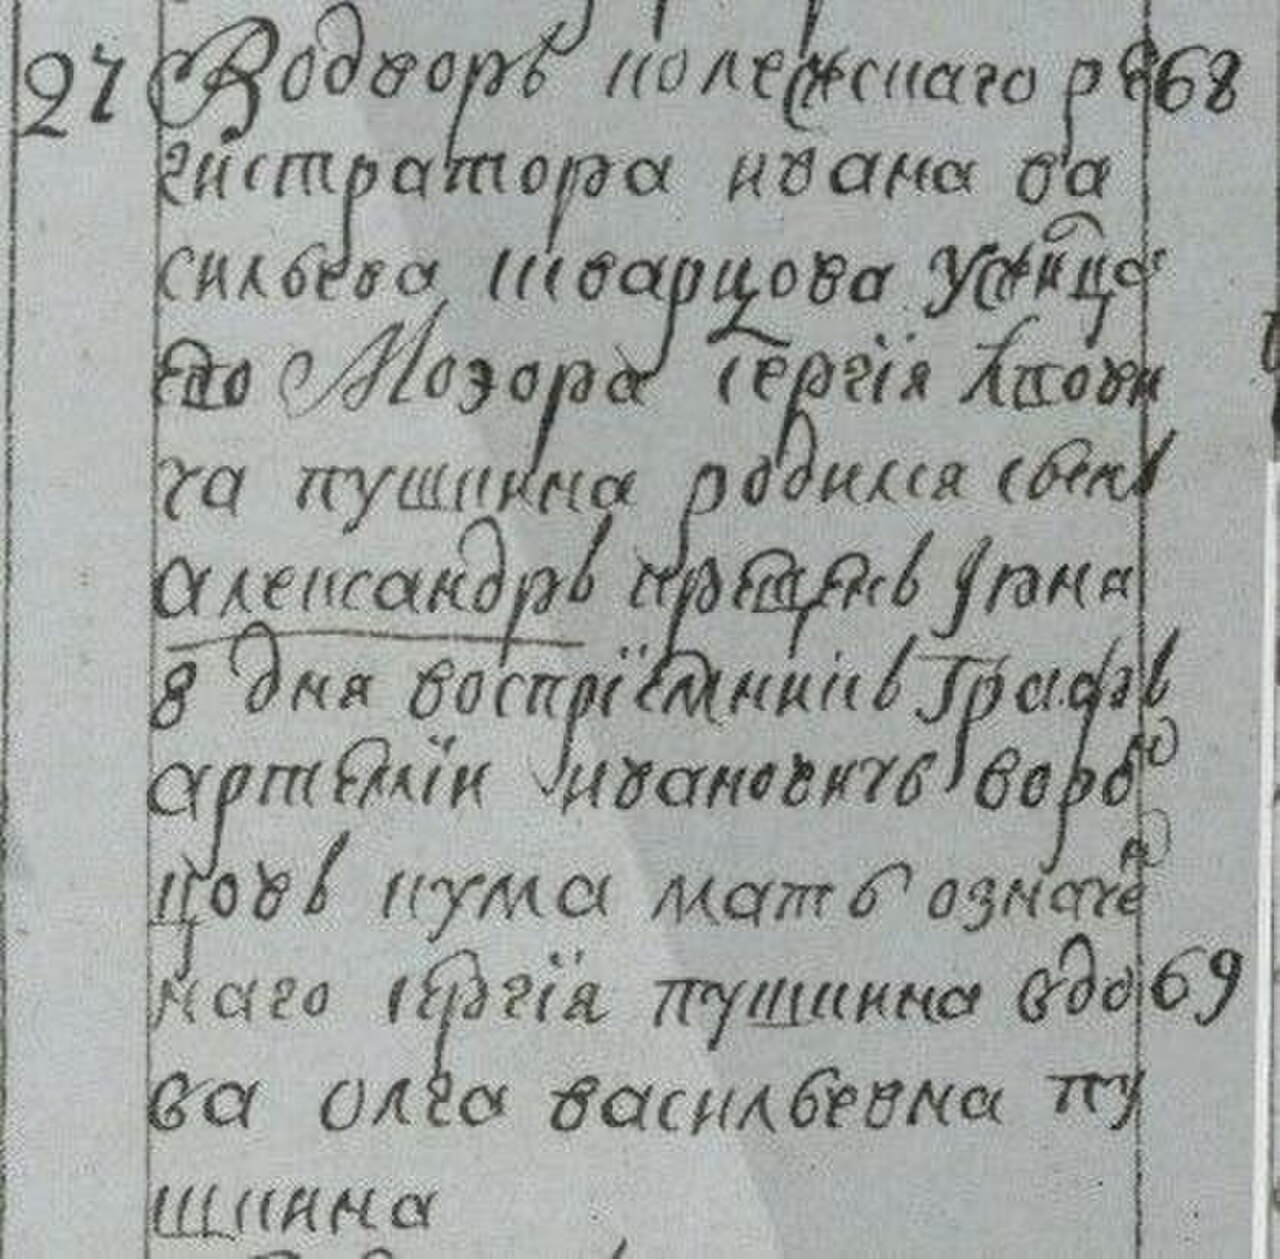 27 Водворѣ колежскаго ре 68
гистратора ивана ва
сильева шварцова у жилца
ево Моэора Сергїя Лвови
ча пушкина родился сынъ
александръ крещенъ июня
8 дня воспрїемникъ графъ
артемїи ивановичь ворон
цовъ кума мать означен
наго сергїя пушкина вдо 69
ва олга васильевна пу
шкина